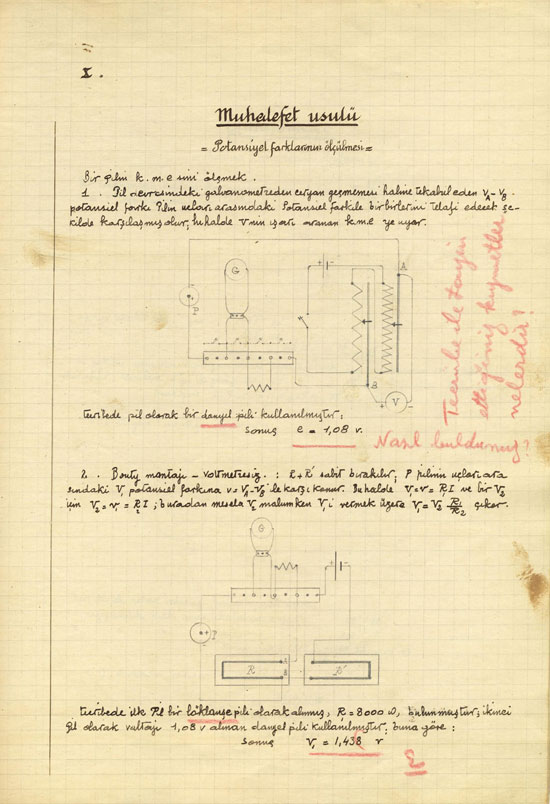 X.
Muhalefet usulü
= Potansiyel farklarının ölçülmesi =
Bir pilin k.m.e sini ölçmek.
1. Pil devresindeki galvanometreden ceryan geçmemesi haline tekabül eden VA-VB
potansiel farkı Pilin uçları arasındaki Potansiel farkile birbirlerini telafi edecek şe-
kilde karşılaşmış olur, bu halde V nin işarı aranan k.m.e ye uyar.
G
A
B
V
P
Tecrübe ile tayin
ettiğiniz kıymetler
nelerdir?
tecrübede pil olarak bir danyel pili kullanılmıştır;
sonuç e = 1,08 v.
Nasıl buldunuz?
2. Bouty montajı - voltmetresiz. : R+R' sabit bırakılır; P pilinin uçları ara
sındaki V1 potansiel farkına le karşı konur. Bu halde V1=v=R1I ve bir V2
için V2=v'=R2I; buradan mesela V2 malumken V1 i vermek üzere V1=V2 R1/R2 çıkar.
G
P
R
A
B
R'
tecrübede ilk Pil bir löklanşe pili olarak alınmış, R1=8000 ω, bulunmuştur; ikinci
pil olarak voltajı 1,08 v alınan danyel pili kullanılmıştır; buna göre:
sonuç V1 = 1,438 v